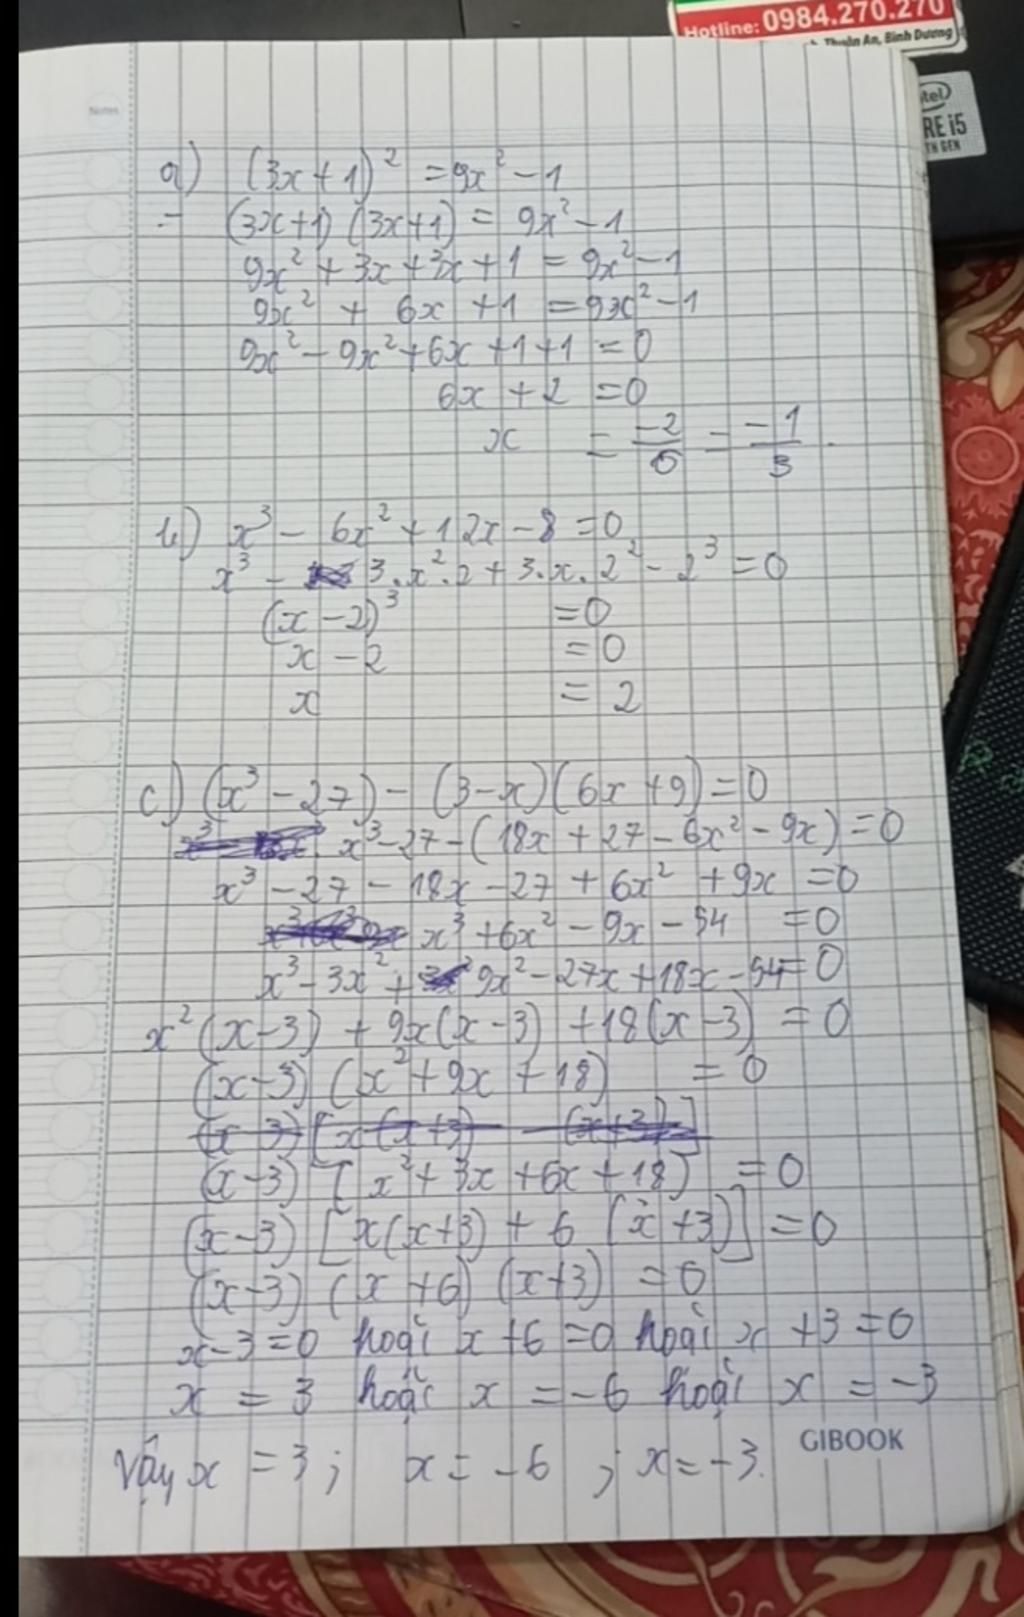 Hotline: 0984.270.270
Thuận An, Bình Dương
intel
RE i5
TH GEN
Notes
a) (3x+1)² = 9x² - 1
= (3x+1) (3x+1) = 9x² - 1
9x² + 3x + 3x + 1 = 9x² - 1
9x² + 6x + 1 = 9x² - 1
9x² - 9x² + 6x + 1 + 1 = 0
6x + 2 = 0
x = -2/6 = -1/3.
b) x³ - 6x² + 12x - 8 = 0
x³ - 3.x².2 + 3.x.2² - 2³ = 0
(x - 2)³ = 0
x - 2 = 0
x = 2
c) (x³ - 27) - (3 - x)(6x + 9) = 0
x³ - 27 - (18x + 27 - 6x² - 9x) = 0
x³ - 27 - 18x - 27 + 6x² + 9x = 0
x³ + 6x² - 9x - 54 = 0
x³ - 3x² + 9x² - 27x + 18x - 54 = 0
x² (x - 3) + 9x(x - 3) + 18(x - 3) = 0
(x - 3) (x² + 9x + 18) = 0
(x - 3) [x(x+3) (x+3)]
(x - 3) [x² + 3x + 6x + 18] = 0
(x - 3) [x(x+3) + 6 (x + 3)] = 0
(x - 3) (x + 6) (x + 3) = 0
x - 3 = 0 hoặc x + 6 = 0 hoặc x + 3 = 0
x = 3 hoặc x = -6 hoặc x = -3
GIBOOK
Vậy x = 3 ; x = -6 ; x = -3.